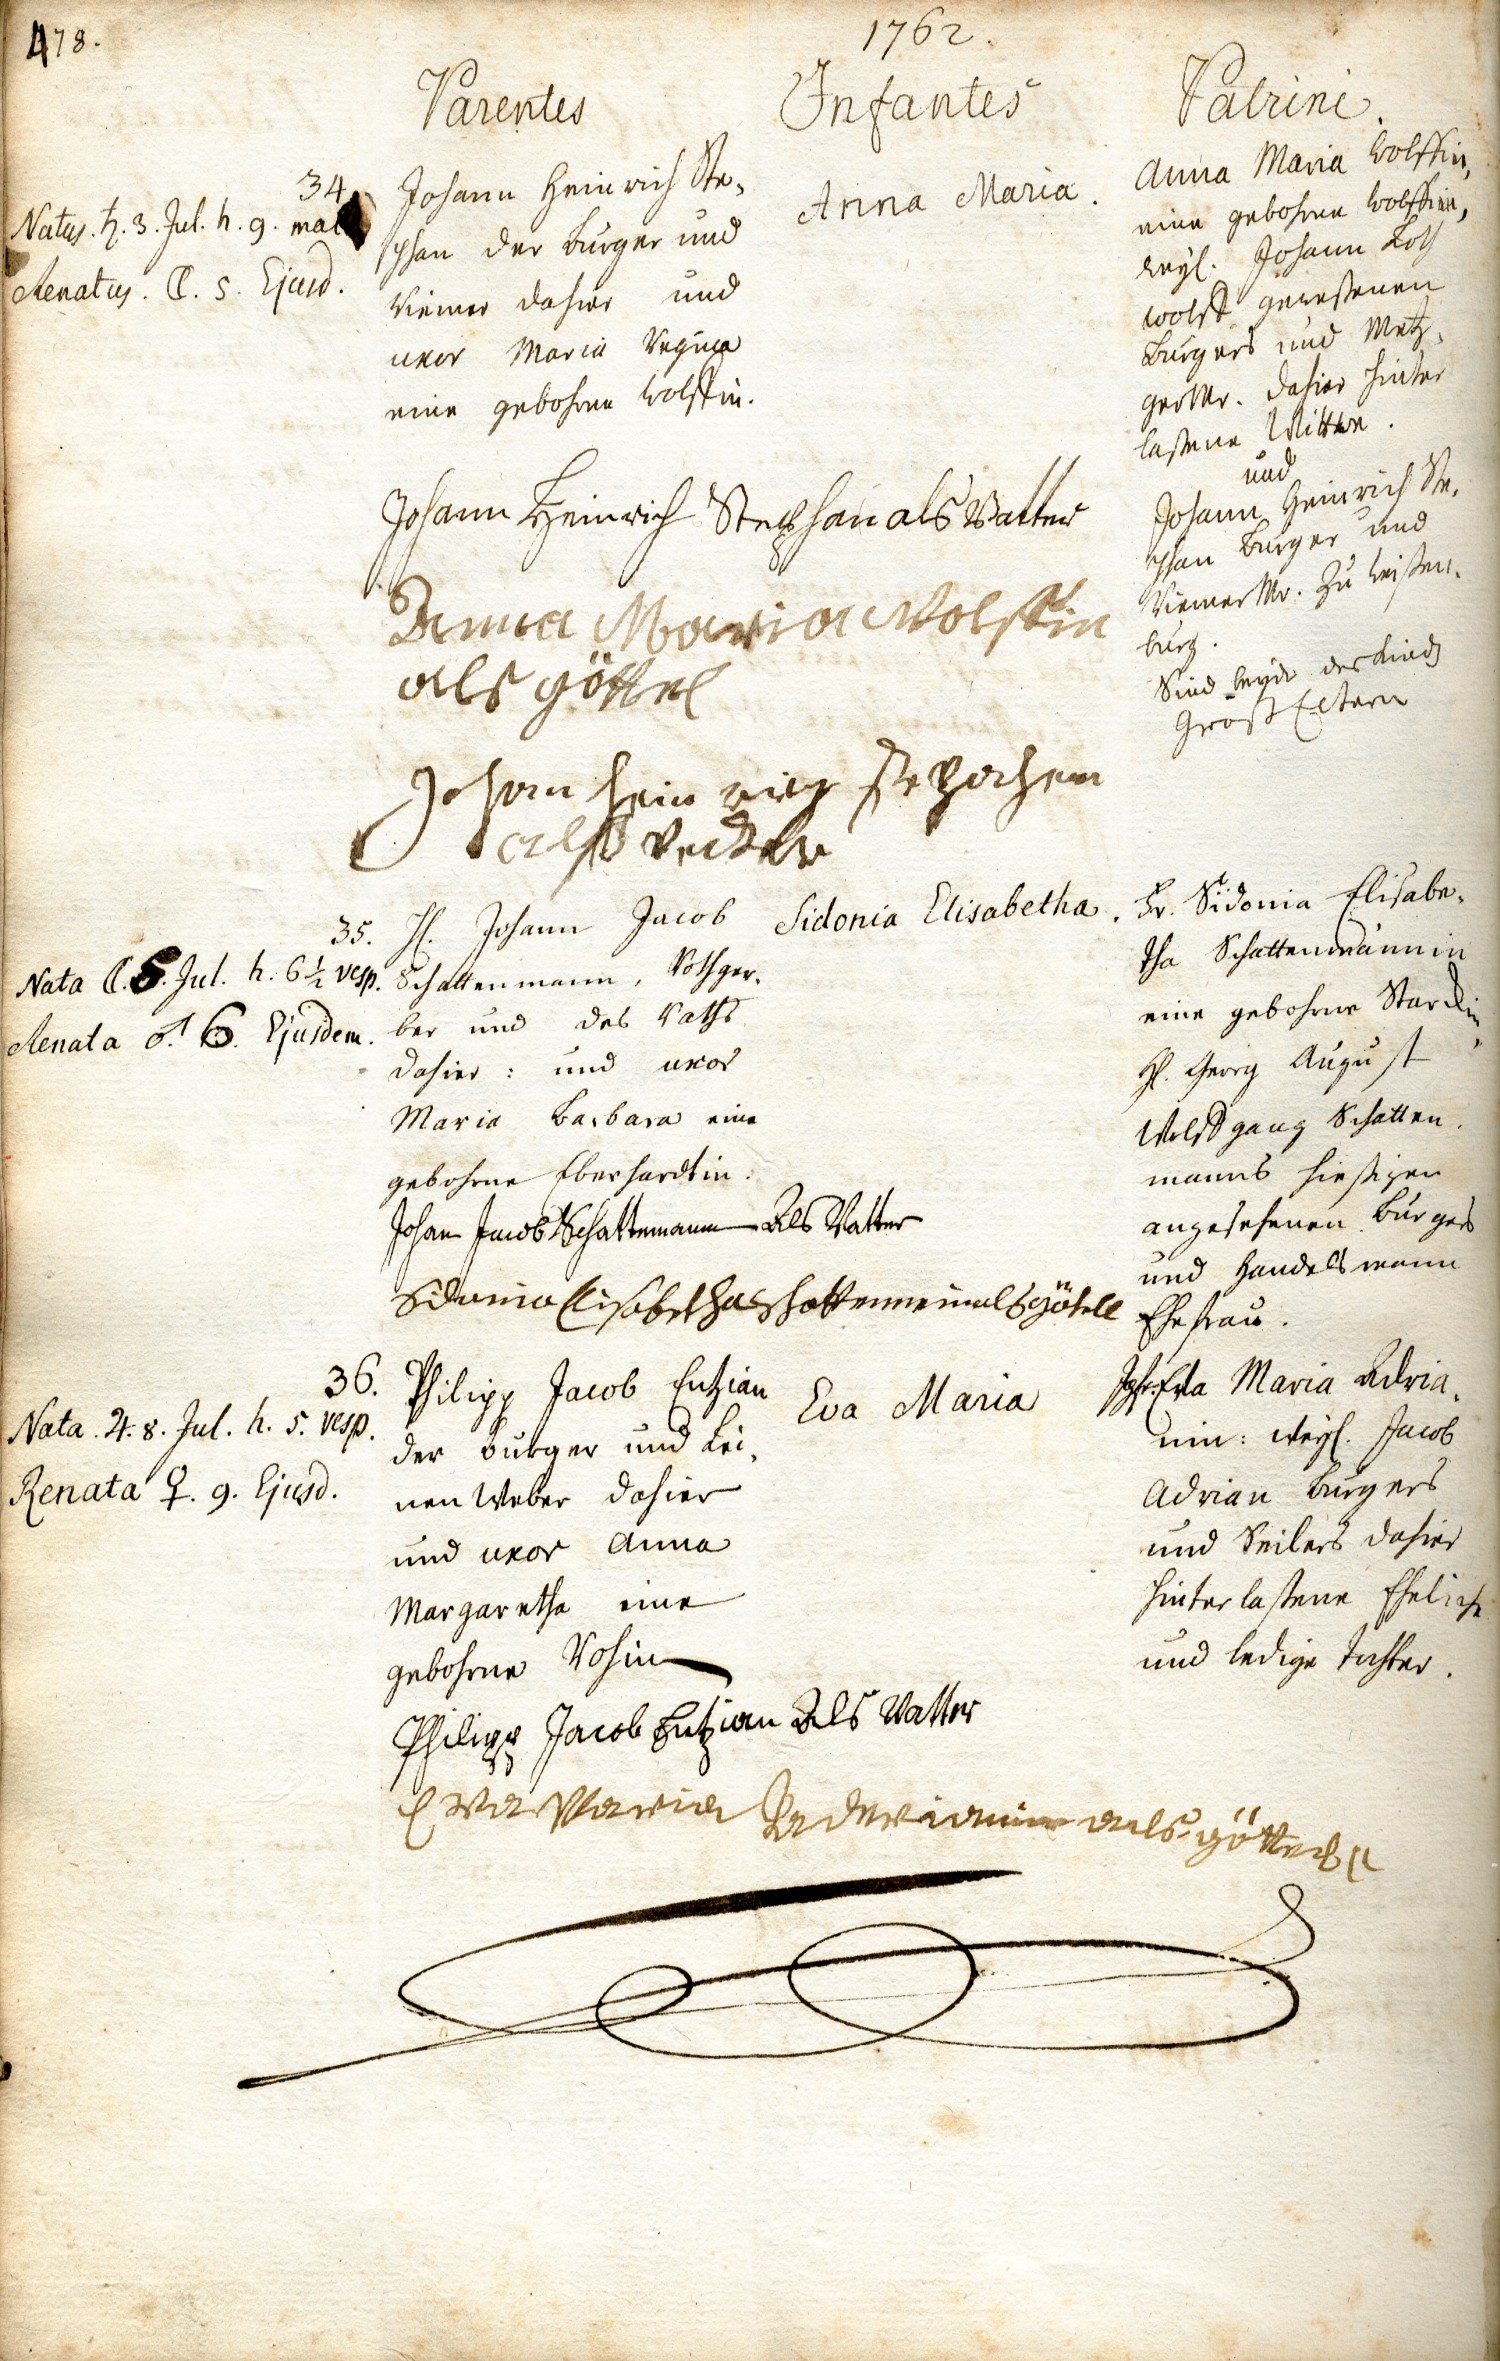 478.
1762.
Parentes
Infantes
Patrini.
34.
Natus. ♄. 3. Jul. h. 9. mat
Renatus. ☾. 5. Ejusd.
Johann Heinrich Ste-
phan der burger und
Kiemer dahier und
uxor Maria Regina
eine gebohrne Wolffin.
Anna Maria.
Anna Maria Wolffin,
eine gebohrne Wolffin,
weyl. Johann
Wolff geweßenen
burgers und Metz-
germr. dahier hinter
laßene Wittwe.
und
Johann Heinrich Ste-
phan burger und
Riemermr. zu Weißen-
burg.
Sind beyde des Kinds
Groß Eltern
Johann Heinrich Stephan als Vatter
Anna Maria Wolffin
als göttel
Johan
als
35.
Nata ☾. 5. Jul. h. 6½ vesp.
Renata ♂. 6. Ejusdem.
H. Johann Jacob
Schattenmann, Rothger-
ber und des Raths
dahier: und uxor
Maria Barbara eine
gebohrne Eberhardtin.
Sidonia Elisabetha.
Fr. Sidonia Elisabe-
tha Schattenmännin
eine gebohrne
H. Georg August
Wolffgang Schatten-
manns hießigen
angesehenen burgers
und Handelsmann
Ehefrau.
Johan Jacob Schattemann Als Vatter
Sidonia Elisabetha
36.
Nata ♃. 8. Jul. h. 5. vesp.
Renata ♀. 9. Ejusd.
Philipp Jacob Entzian
der burger und Lei-
nenWeber dahier
und uxor Anna
Margaretha eine
gebohrne Rohin
Eva Maria
Jgfr. Eva Maria Adria-
nin: weyl. Jacob
Adrian burgers
und Seilers dahier
hinterlaßene Eheliche
und ledige Tochter.
Philipp Jacob Entzian Als Vatter
Ewa Maria Aderianin als göttel